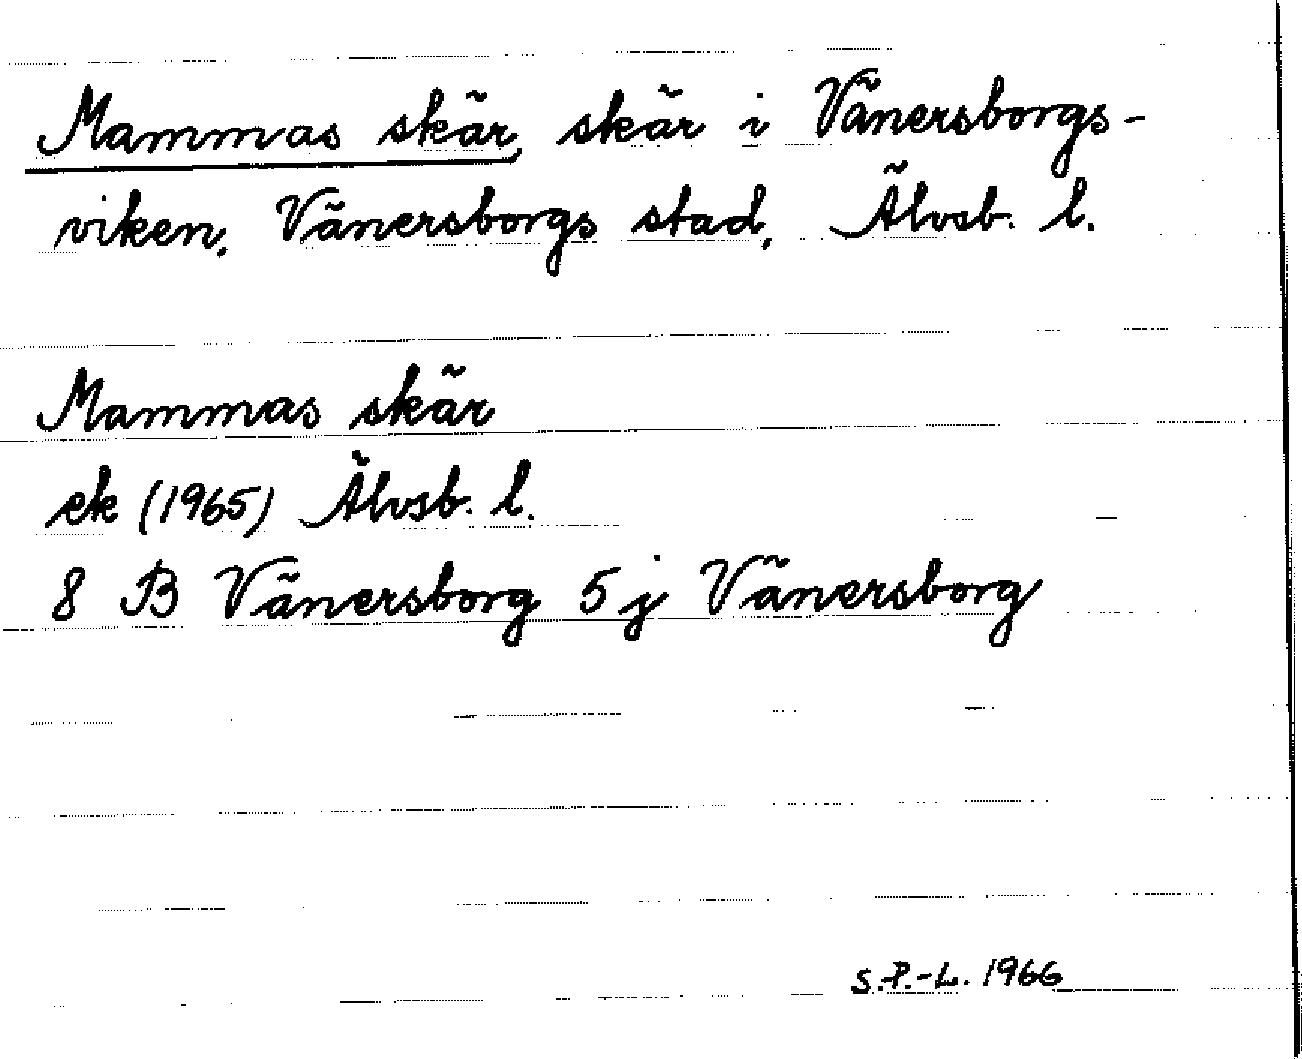 Mammas skär, skär i Vänersborgs-
viken, Vänersborgs stad, Älvsb. l.
Mammas skär
ek (1965) Älvsb. l.
8 B Vänersborg 5 j Vänersborg
S.P.-L. 1966